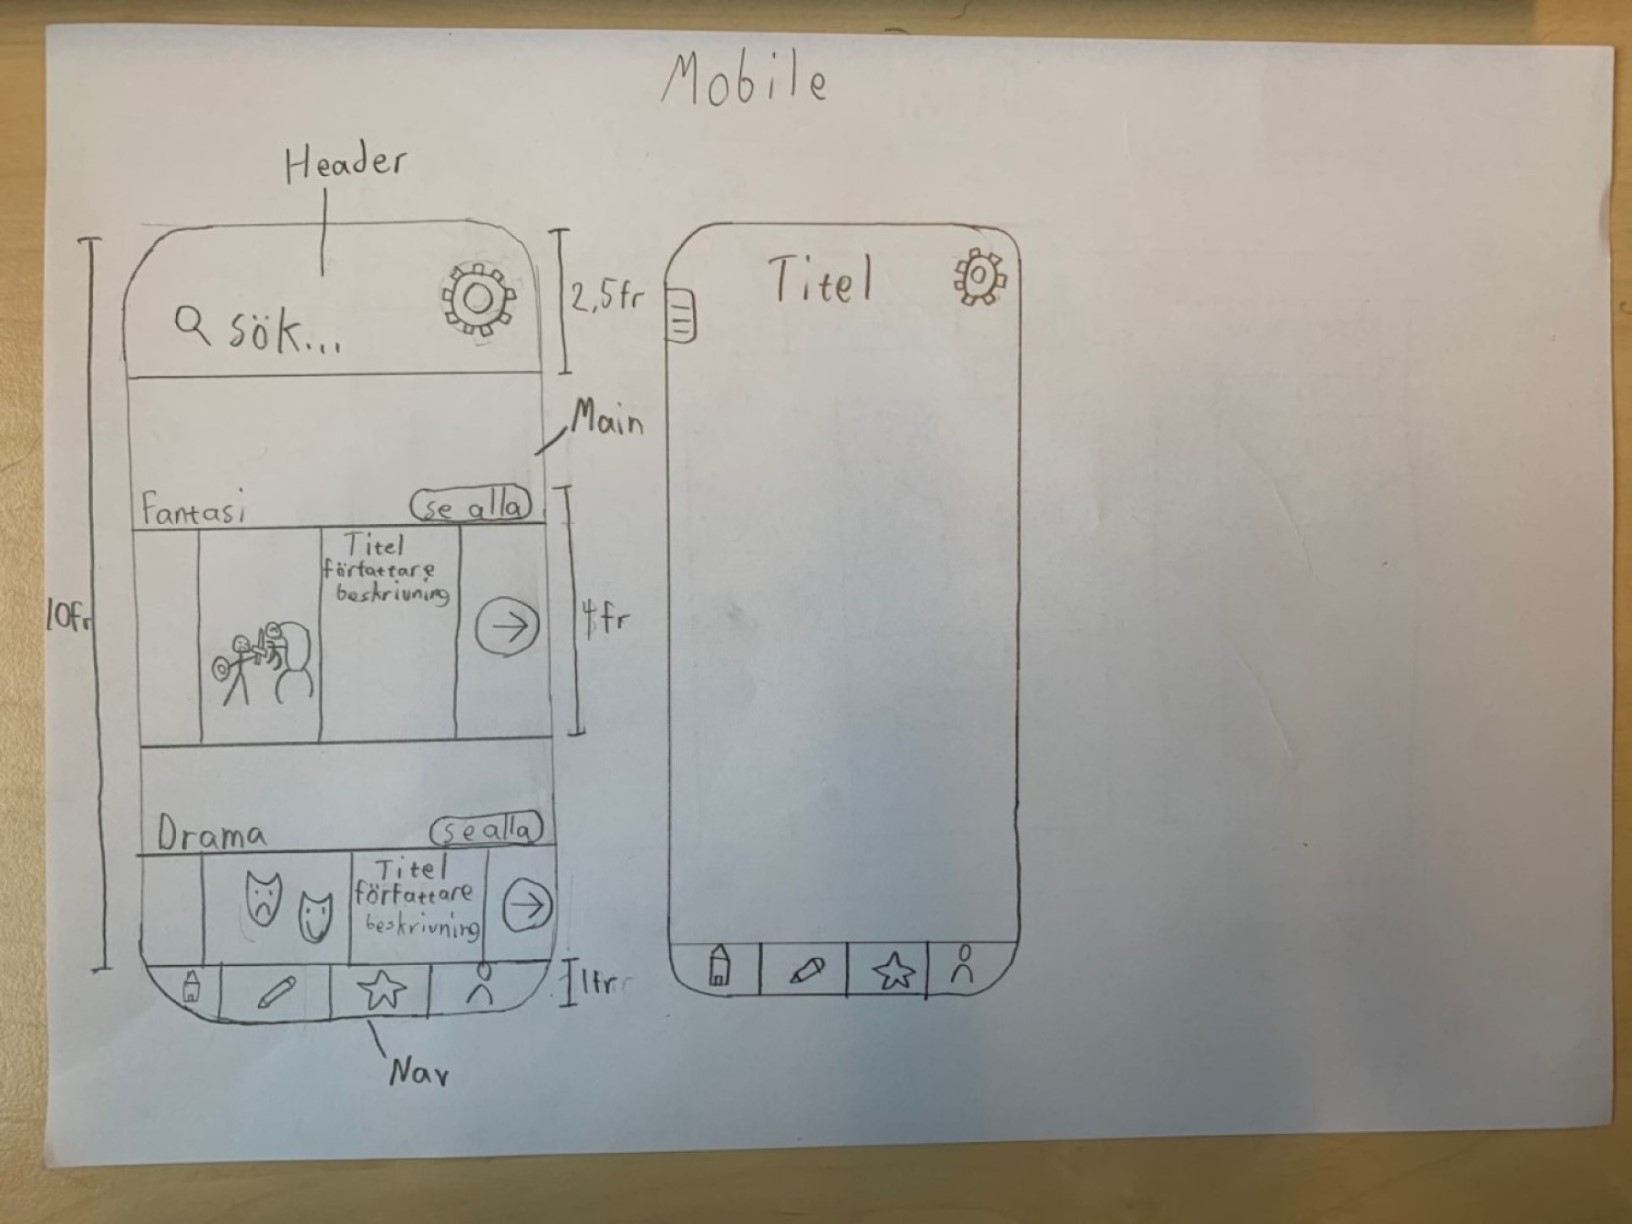 Mobile
Header
sök...
2,5fr
Main
Fantasi
se alla
Titel
författare
beskrivning
10fr
4fr
Drama
se alla
Titel
författare
beskrivning
1fr
Nav
Titel